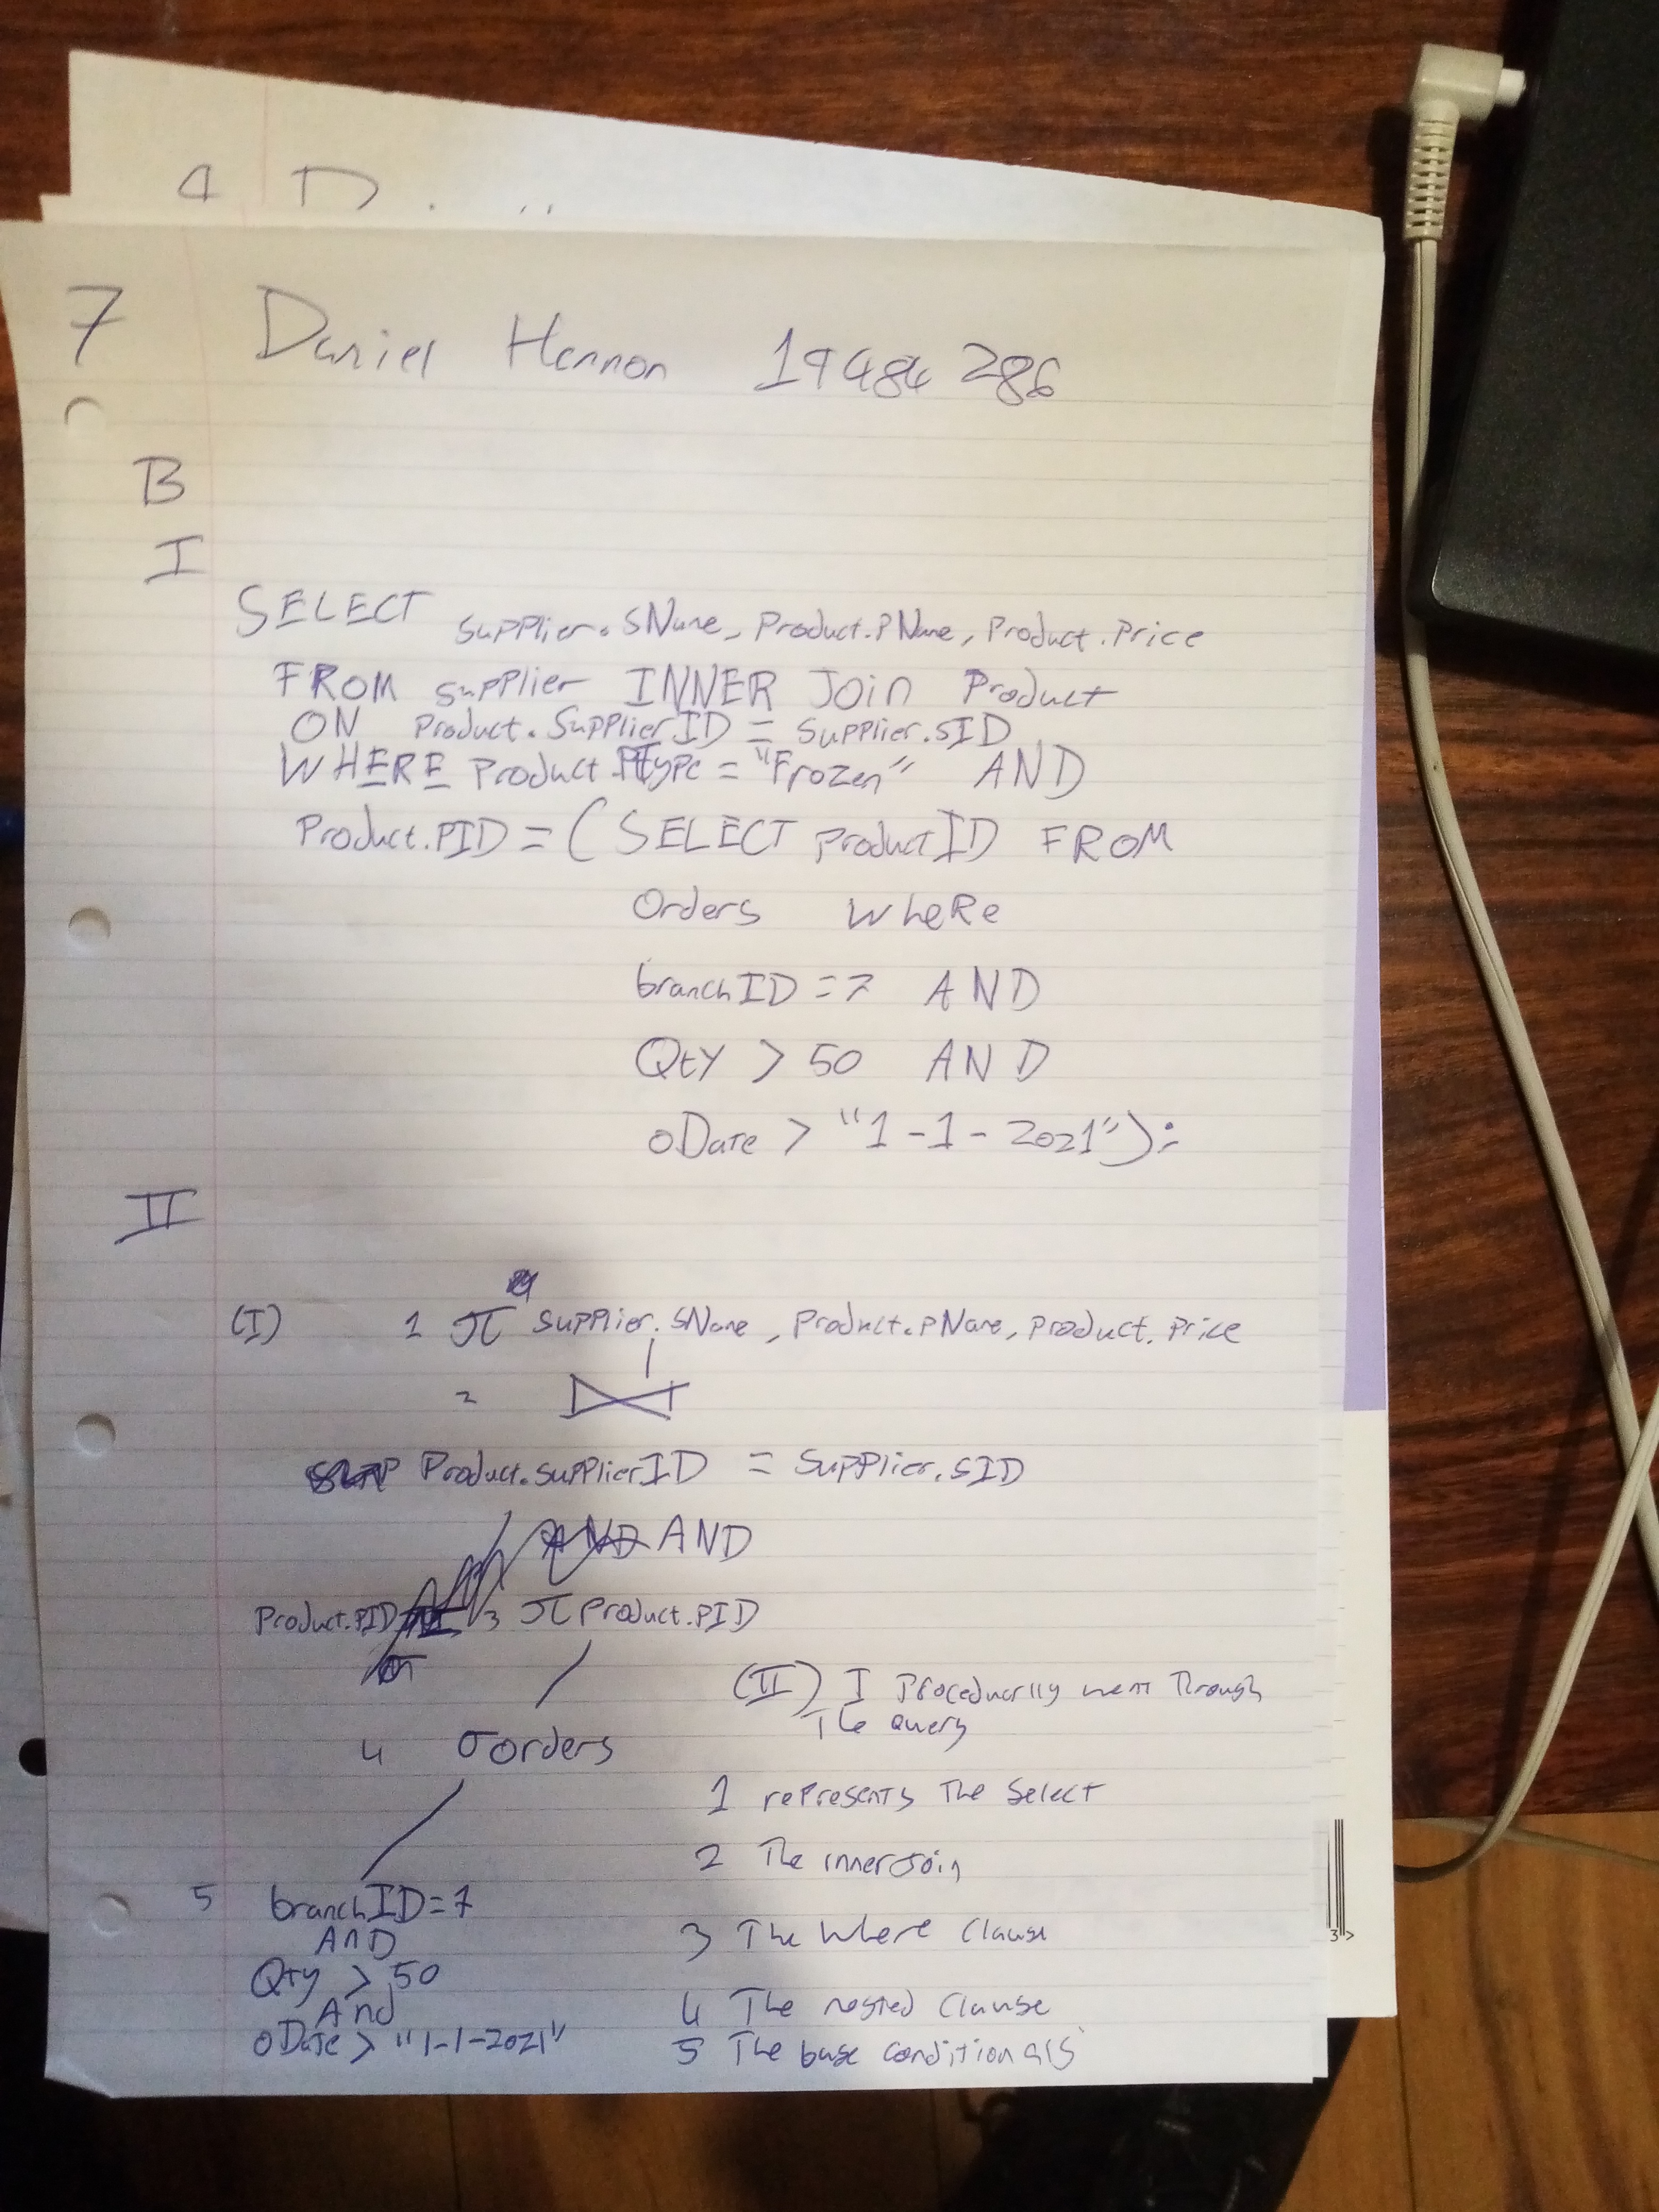 4 D
7 Daniel Hannon 19484286
B
I
SELECT supplier.sName, Product.PName, Product.Price
FROM supplier INNER Join Product
ON Product.SupplierID = Supplier.SID
WHERE Product.PType = "Frozen" AND
Product.PID = (SELECT ProductID FROM
Orders WheRe
branchID = 7 AND
Qty > 50 AND
oDate > "1-1-2021");
II
(I) 1 π supplier.sName, Product.pName, Product.Price
2 ⋈
Product.supplierID = Supplier.SID
AND
Product.PID 3 π Product.PID
4 σ orders
(II) I Procedurally went Through
The query
1 represents The Select
2 The innerJoin
5 branchID = 7
3 The Where Clause
AnD
Qty > 50
And
4 The nested Clause
oDate > "1-1-2021"
5 The base conditionals
3>